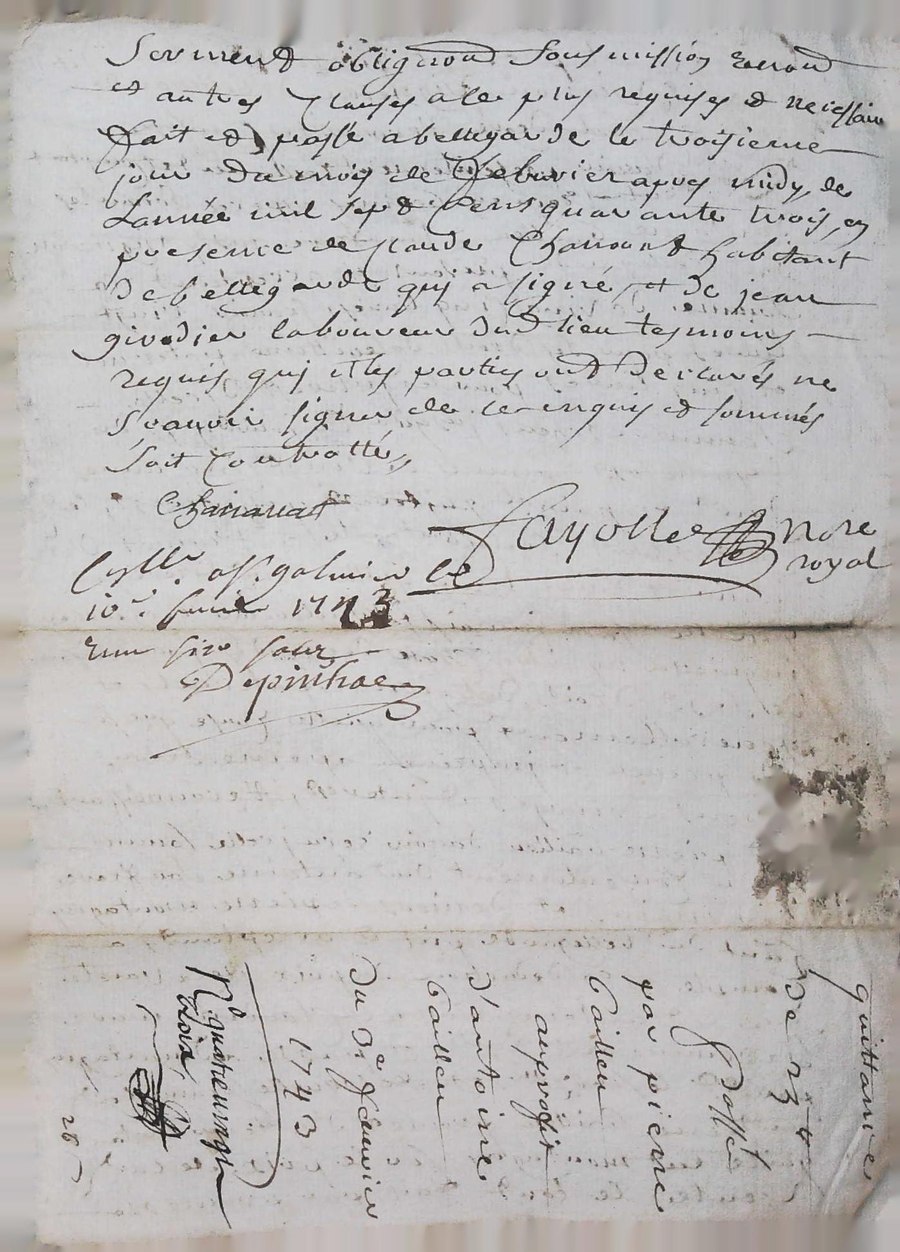 serment obligaōn soumission renonō
et autres clauses a ce plus requises et necessaire
fait et passé a bellegarde le troisieme
jour du mois de febvrier apres midy, de
Lannée mil sept Cens quarante trois, en
presence de Claude Chanarat habitant
de bellegarde qui a signé, et de jean
girodier laboureur dud lieu tesmoins
requis, qui et les parties ont declarés ne
scavoir signer de ce enquis et sommés
soit Controllé,
Chanarat
fayolle nore
royal
Conllé a st galmier le
10e. fevrier 1743
six sous
quittance
de
passé
par pierre
auproffit
d'antoine
Du 3e fevrier
1743
No quatrevingt
trois